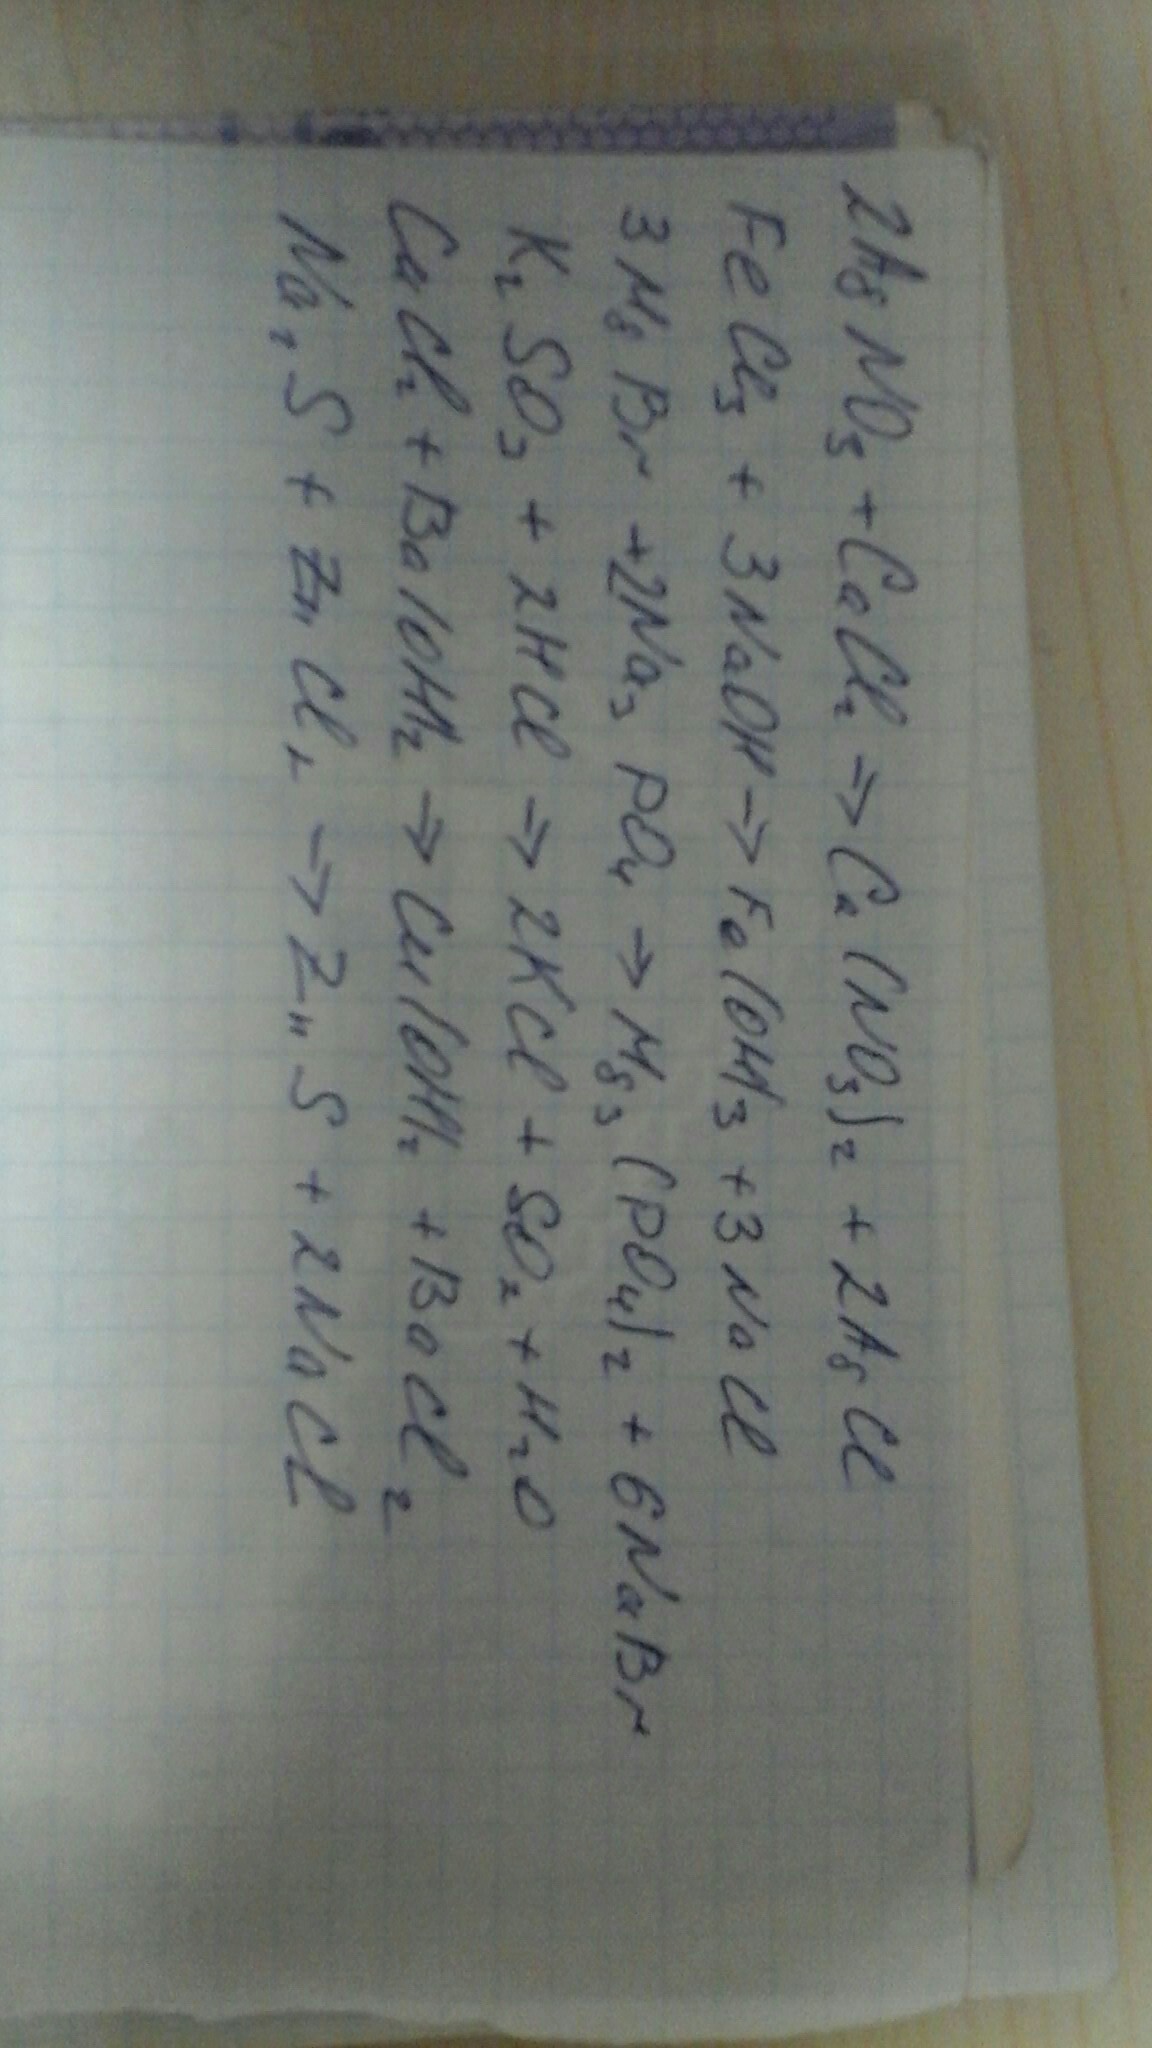 2AgNO₃ + CaCl₂ → Ca(NO₃)₂ + 2AgCl
FeCl₃ + 3NaOH → Fe(OH)₃ + 3NaCl
3MgBr + 2Na₃PO₄ → Mg₃(PO₄)₂ + 6NaBr
K₂SO₃ + 2HCl → 2KCl + SO₂ + H₂O
CuCl₂ + Ba(OH)₂ → Cu(OH)₂ + BaCl₂
Na₂S + ZnCl₂ → ZnS + 2NaCl